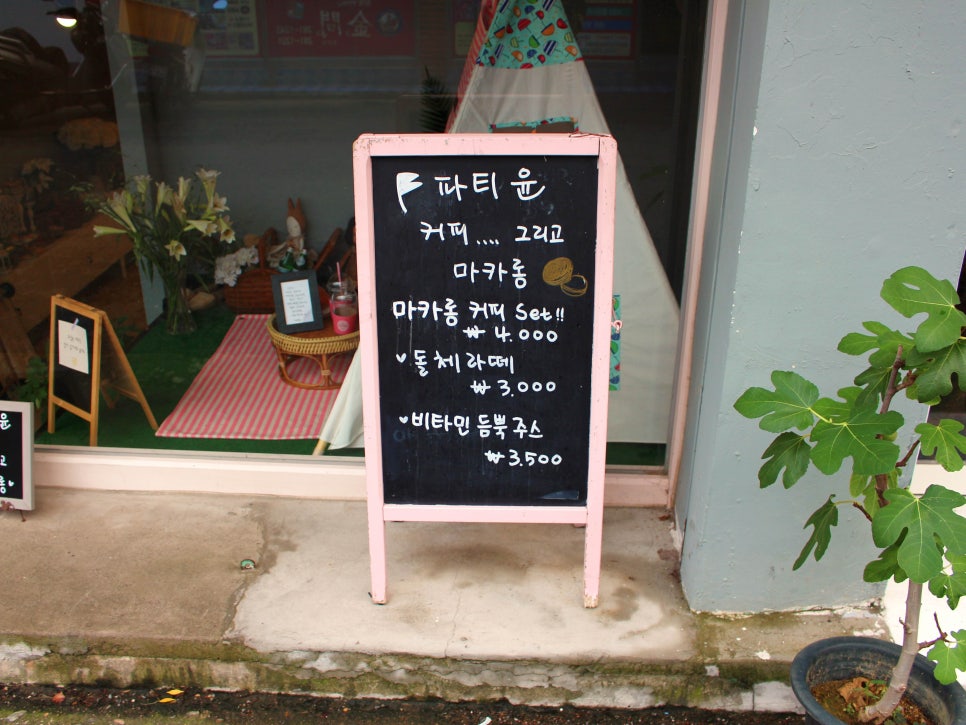 파티윤
커피.... 그리고
마카롱
마카롱 커피 Set!!
₩ 4.000
돌체라떼
₩ 3.000
비타민 듬뿍 주스
₩3.500
윤
고
롱